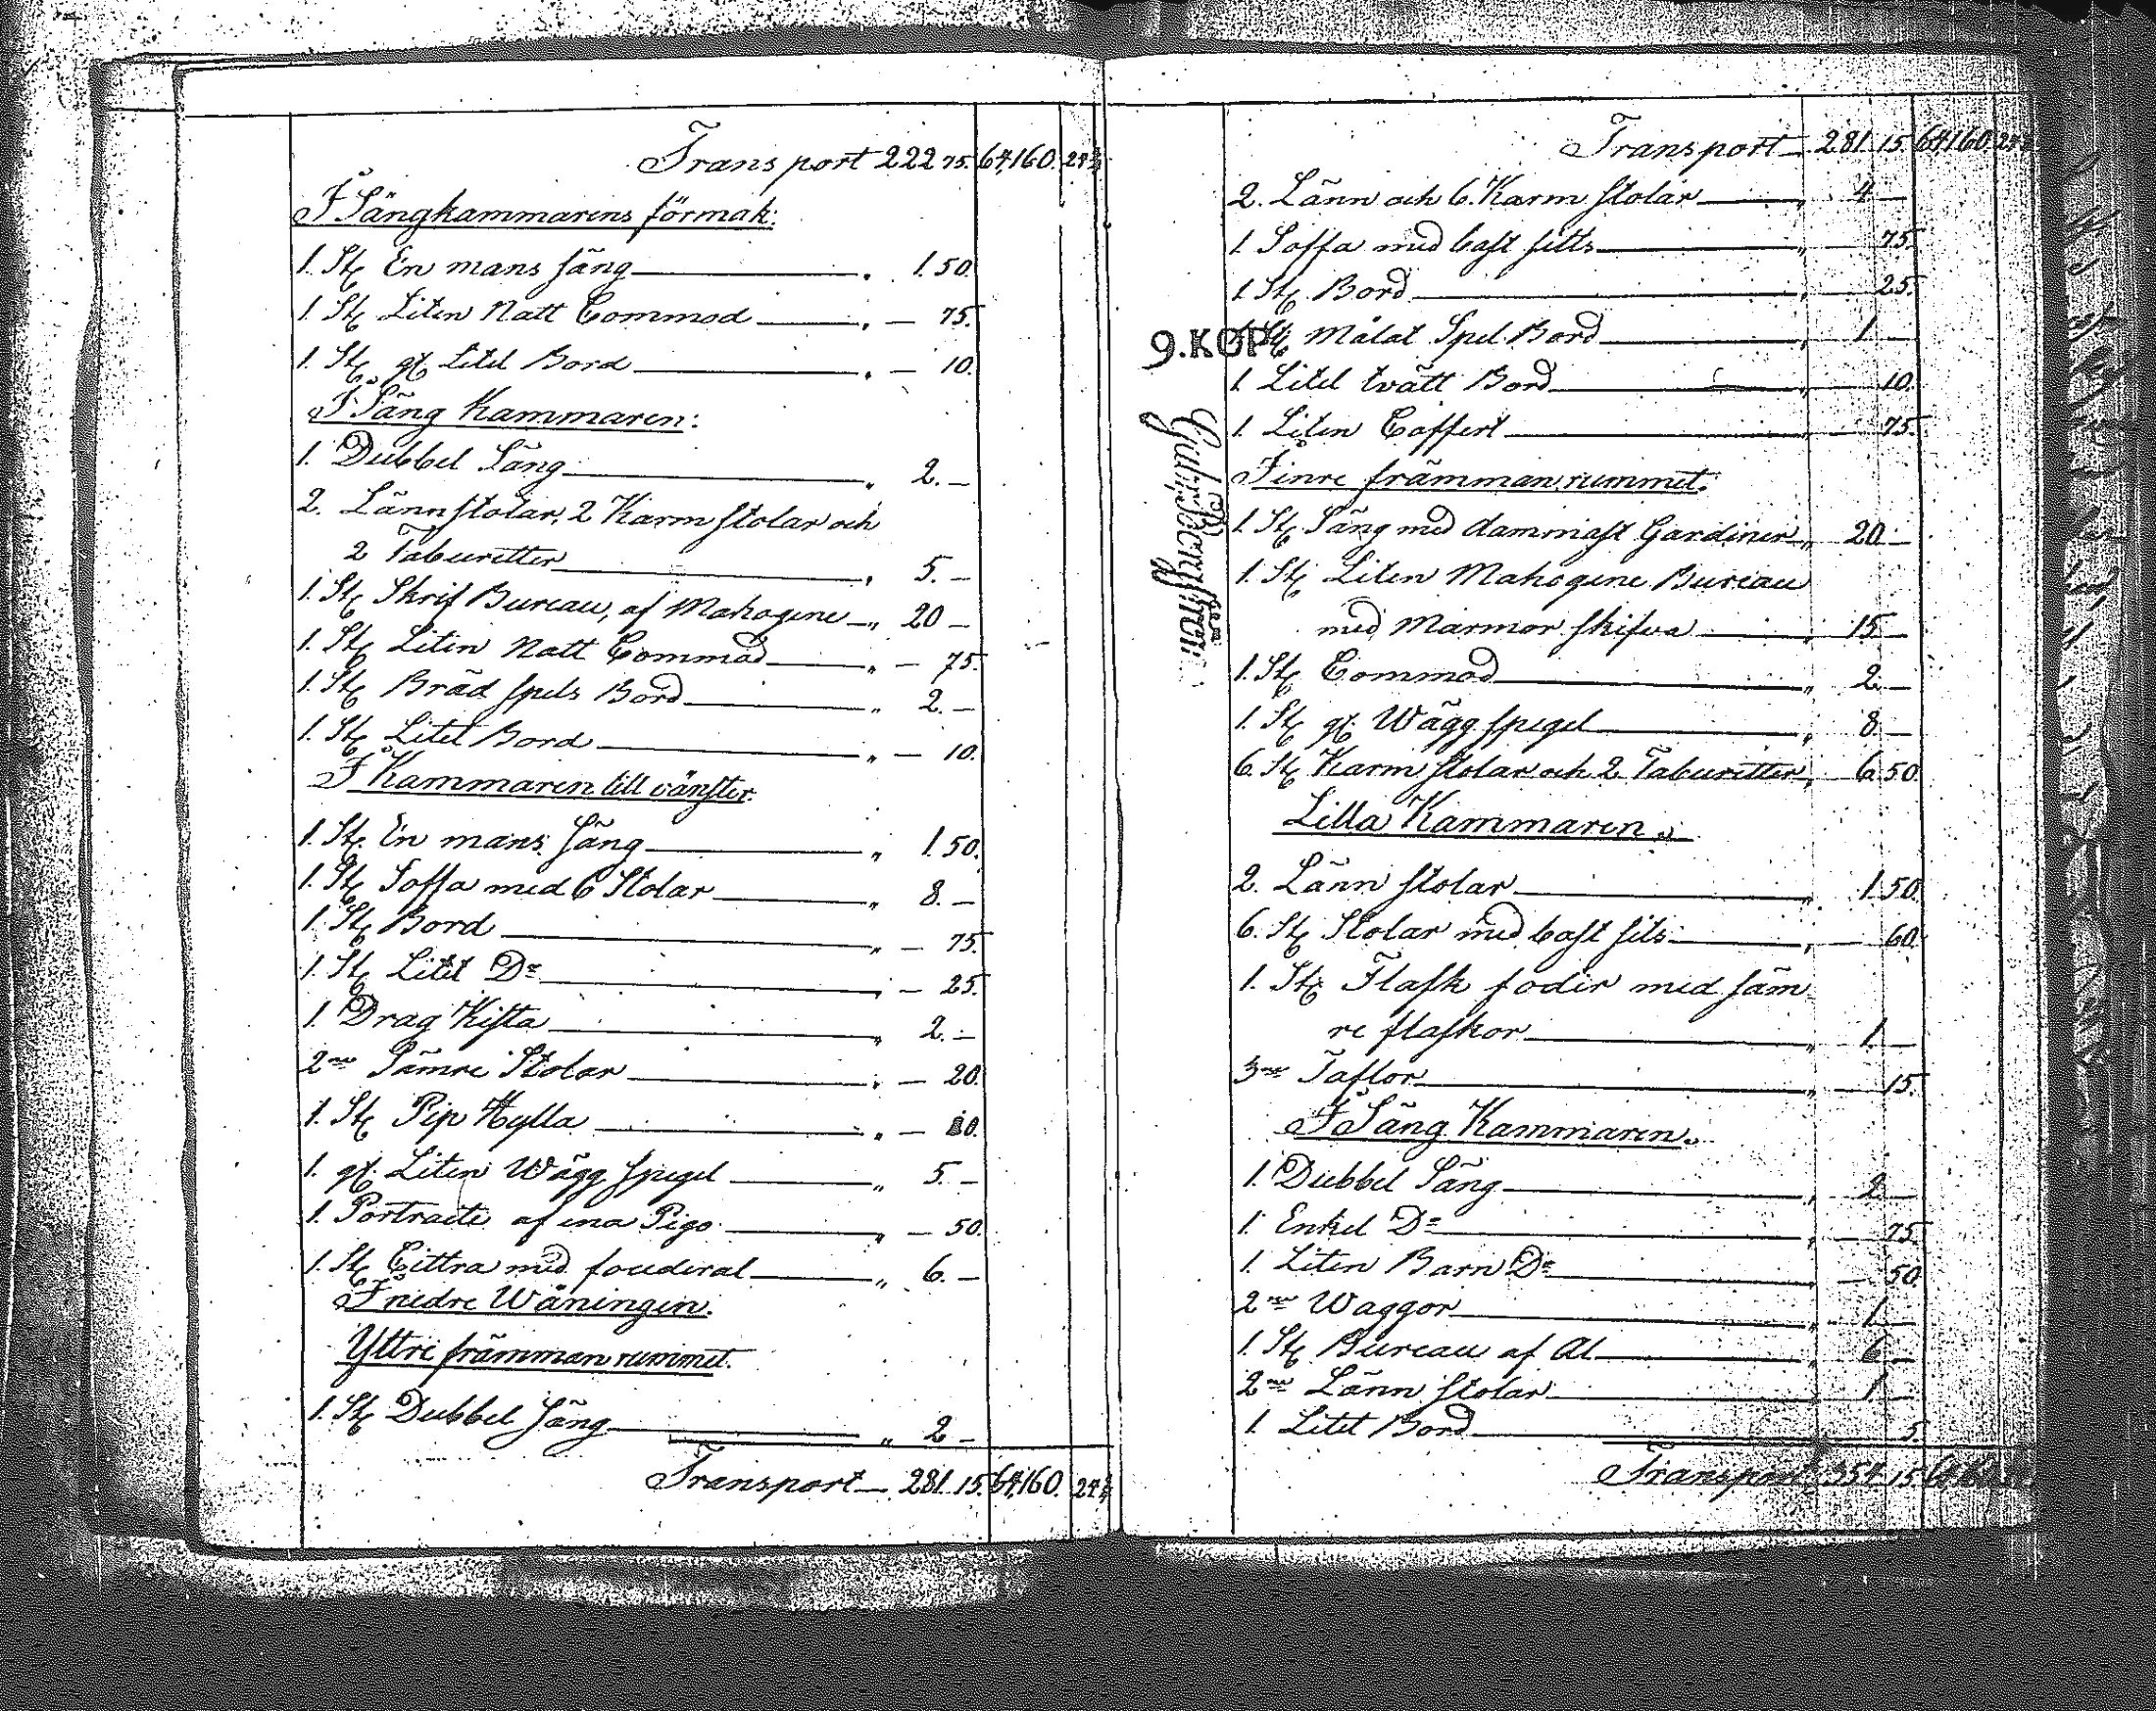 Transport 222 75. 64,160. 24
I Sängkammarens förmak:
1. St. En mans säng — „ 1. 50.
1. St. Liten Natt Commod — „ — 75.
1. St. gl. Litet Bord — „ — 10.
I Säng Kammaren:
1. Dubbel Säng — „ 2. —
2. Lännstolar, 2 Karm stolar och
2 Taburetter — „ 5. —
1. St. Skrif Bureau, af Mahogene — „ 20 —
1. St. Liten Natt Commod — „ — 75.
1. St. Bräd spels Bord — „ 2. —
1. St. Litet Bord — „ — 10.
I Kammaren till vänster.
1. St. En mans Säng — „ 1. 50.
1. St. Soffa med 6 Stolar — „ 8. —
1. St. Bord — „ — 75.
1. St. Litet Do — „ — 25.
1. Drag Kista — „ 2. —
2ne Sämre Stolar — „ — 20.
1. St. Pip Hylla — „ — 0.
1. gl. Liten Wägg spegel — „ 5. —
1. Portraite af ena Pigo — „ — 50.
1. St. Cittra med fouderal — „ 6. —
I nedre Wåningen.
Yttre främman rummet.
1. St. Dubbel Säng — „ 2 —
Transport — 281. 15. 64,160. 24
Transport — 281. 15. 64,160. 24
2. Länn och 6. Karm stolar — „ 4 —
1 Soffa med bast sitts — „ — 75.
1 St. Bord — „ — 25.
1 St. Målat Spel Bord — „ 1 —
1 Litet tvätt Bord — „ — 10.
1. Liten Coffert — „ — 75.
Finre främman rummet.
1 St. Säng med dammast Gardiner — „ 20 —
1. St. Liten Mahogene Bureau
med Marmor skifva — „ 15 —
1. St. Commod — „ 2. —
1. St. gl. Wägg spegel — „ 8 —
6. St. Karm stolar och 2 Taburetter „ 6. 50.
Lilla Kammaren.
2. Länn stolar — „ 1. 50.
6. St. Stolar med bast sits — „ — 60.
1. St. Flask foder med säm-
re flaskor — „ 1. —
3ne Taflor — „ — 15.
I Säng Kammaren.
1. Dubbel Säng — „ 2 —
1. Enkel Do — „ — 75.
1. Liten Barn Do — „ — 50.
2ne Waggor — „ 1 —
1. St. Bureau af Al — „ 6 —
2ne Länn stolar — „ 1 —
1. Litet Bord — „ 5.
Transport 354 15
9.KOP